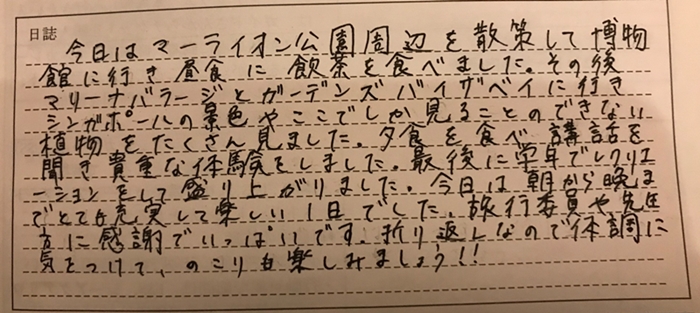 日誌
今日はマーライオン公園周辺を散策して博物
館に行き昼食に飲茶を食べました。その後
マリーナバラージとガーデンズバイザベイに行き
シンガポールの景色やここでしか見ることのできない
植物をたくさん見ました。夕食を食べ講話を
聞き貴重な体験をしました。最後に学年でレクリエ
ーションをして盛り上がりました。今日は朝から晩ま
でとても充実して楽しい1日でした。旅行委員や先生
方に感謝でいっぱいです。折り返しなので体調に
気をつけて、のこりも楽しみましょう!!